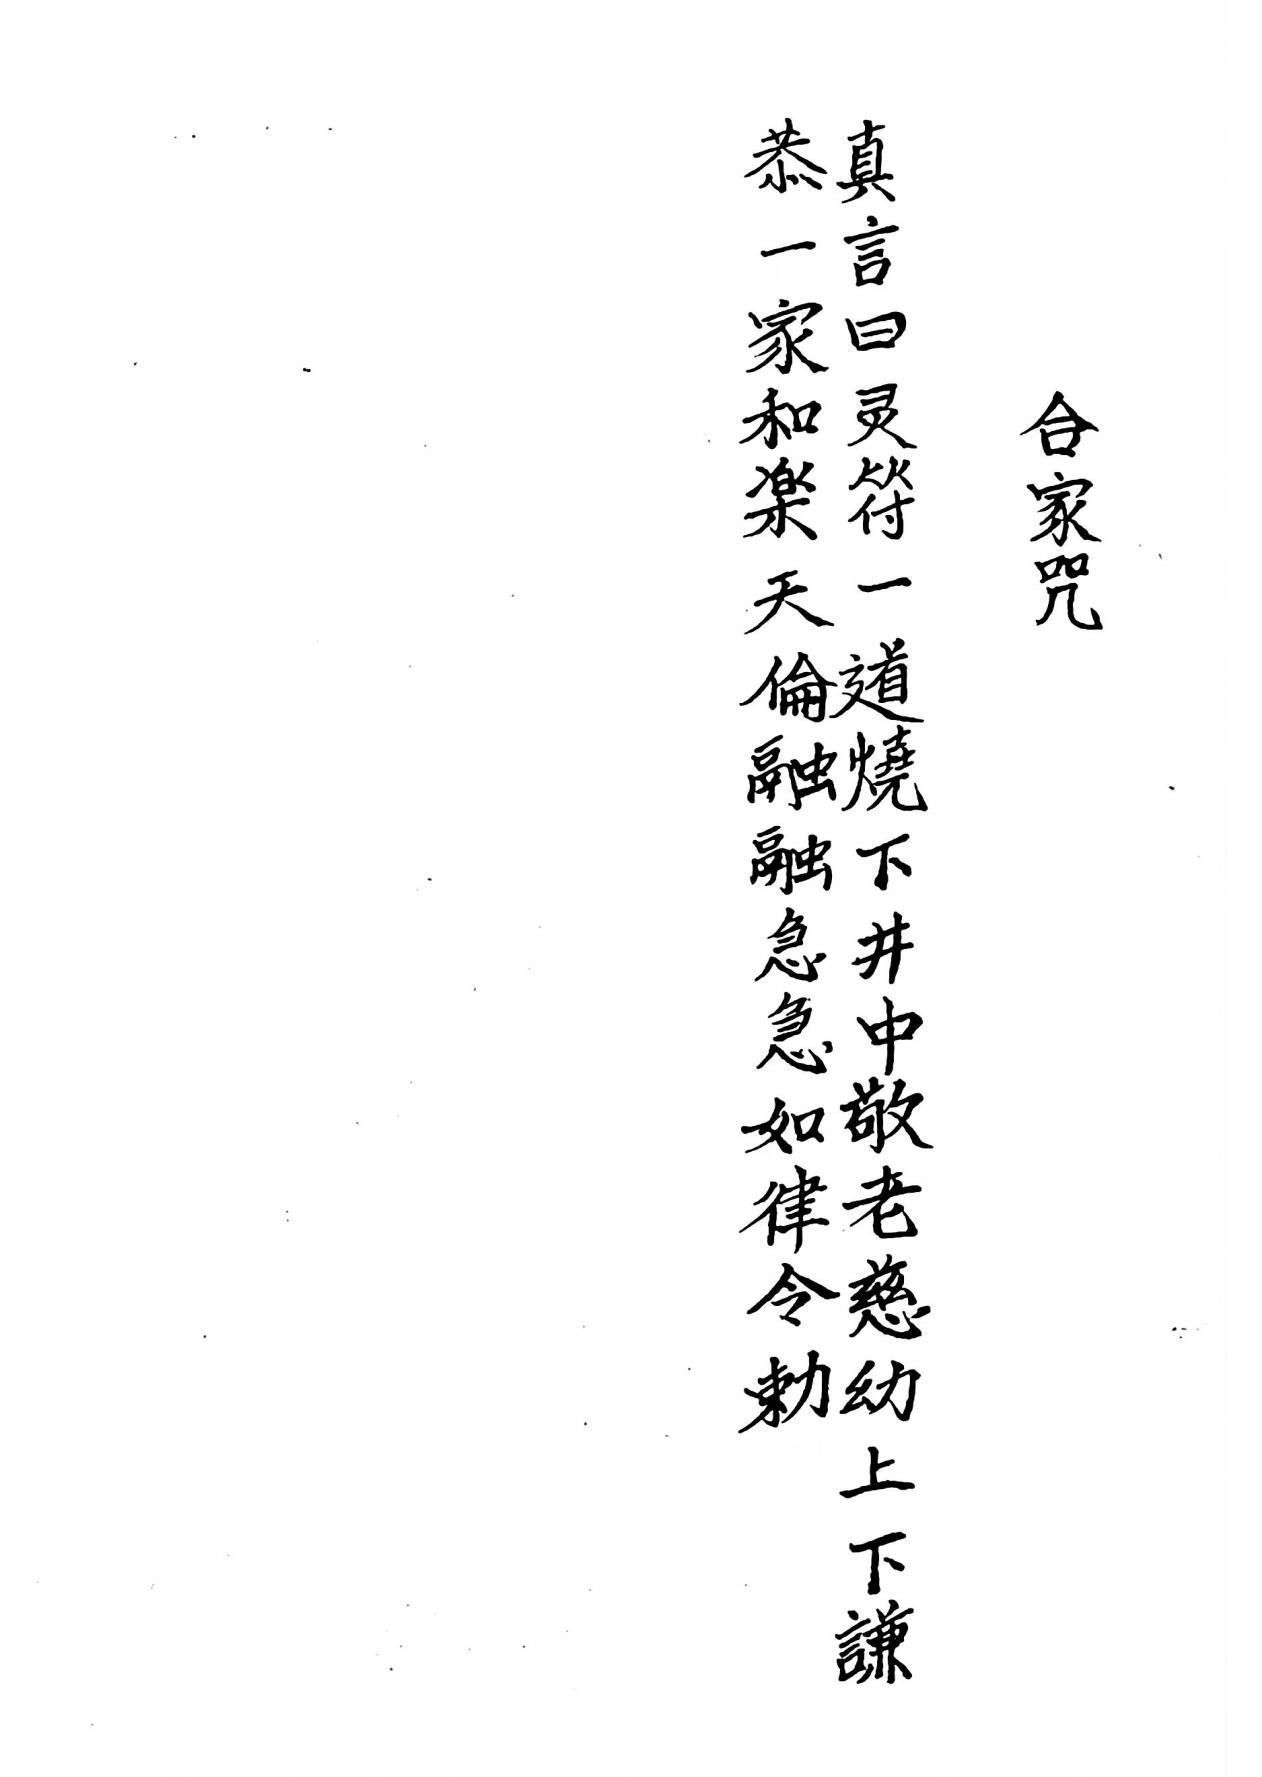 合家咒
真言曰灵符一道燒下井中敬老慈幼上下謙
恭一家和楽天倫融融急急如律令勅